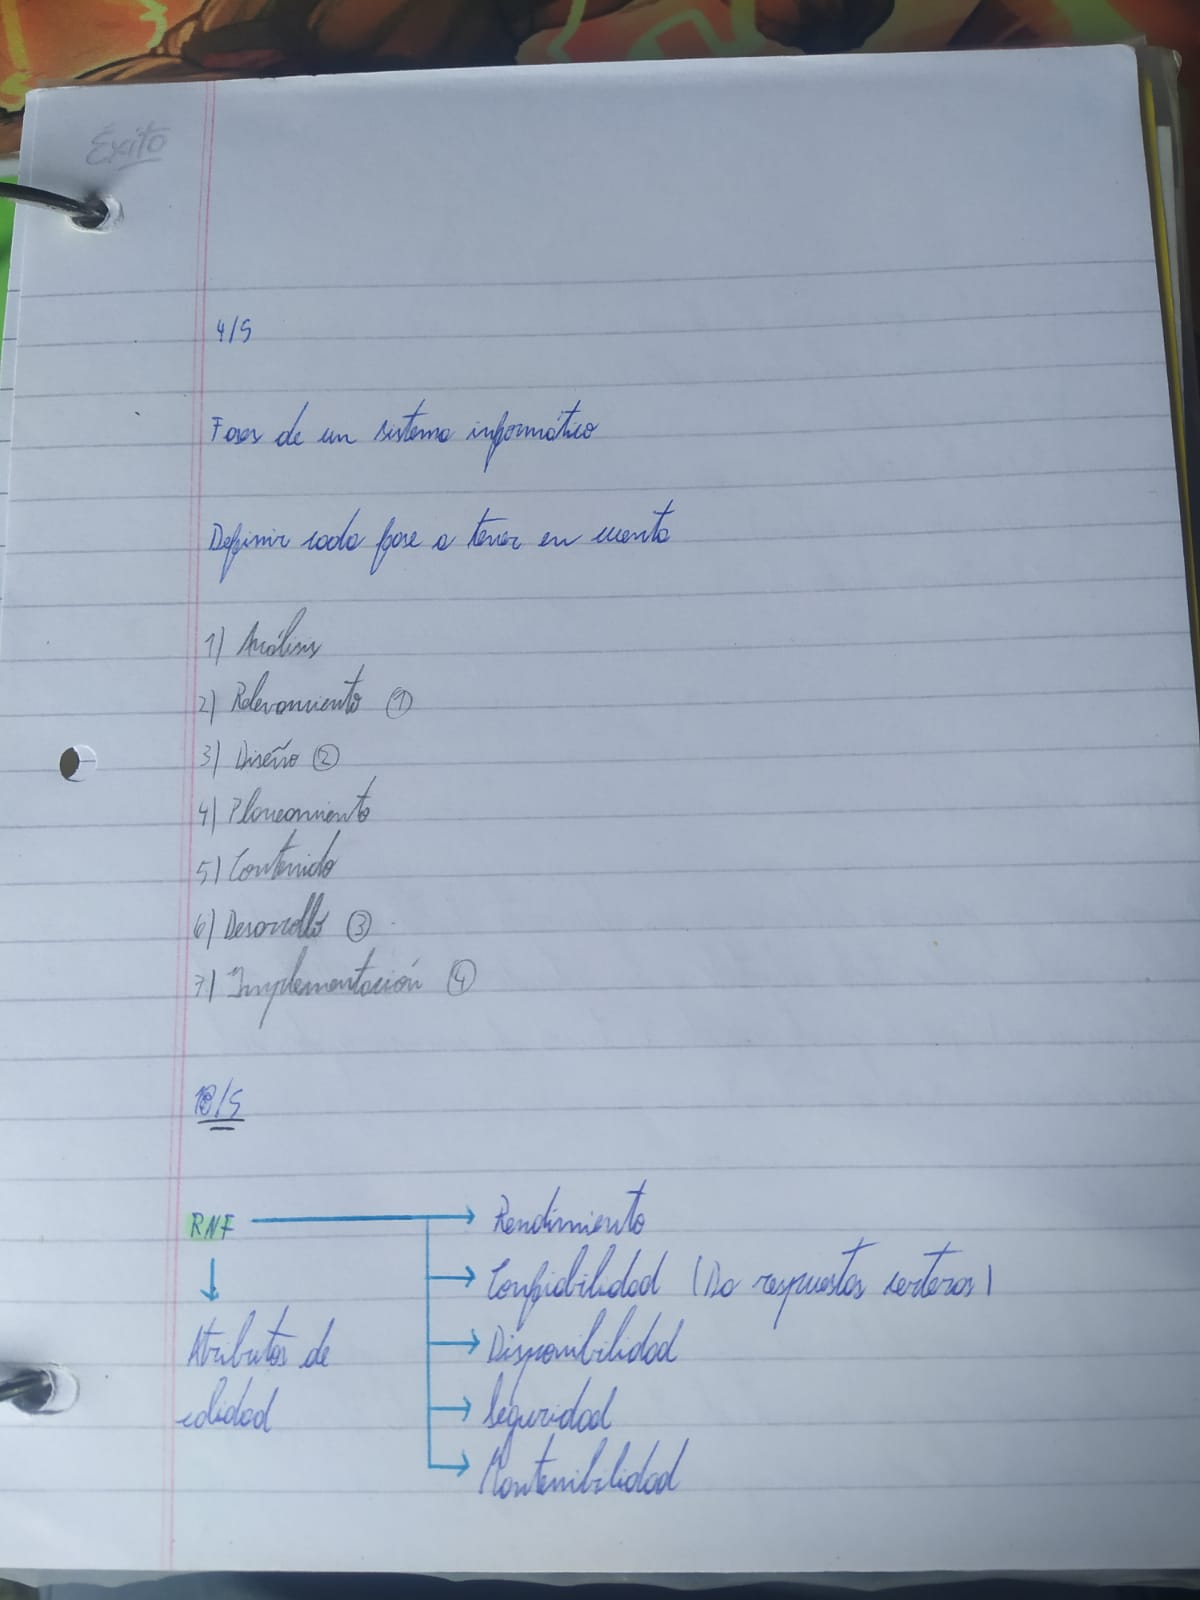 Éxito
4/5
Fases de un sistema informático
Definir cada fase a tener en cuenta
1) Análisis
2) Relevamiento ①
3) Diseño ②
4) Planeamiento
5) Contenido
6) Desarrollo ③
7) Implementación ④
/5
RNF → Rendimiento
→ Confiabilidad (Da respuestas certeras)
↓
Atributos de → Disponibilidad
calidad → Seguridad
→ Mantenibilidad